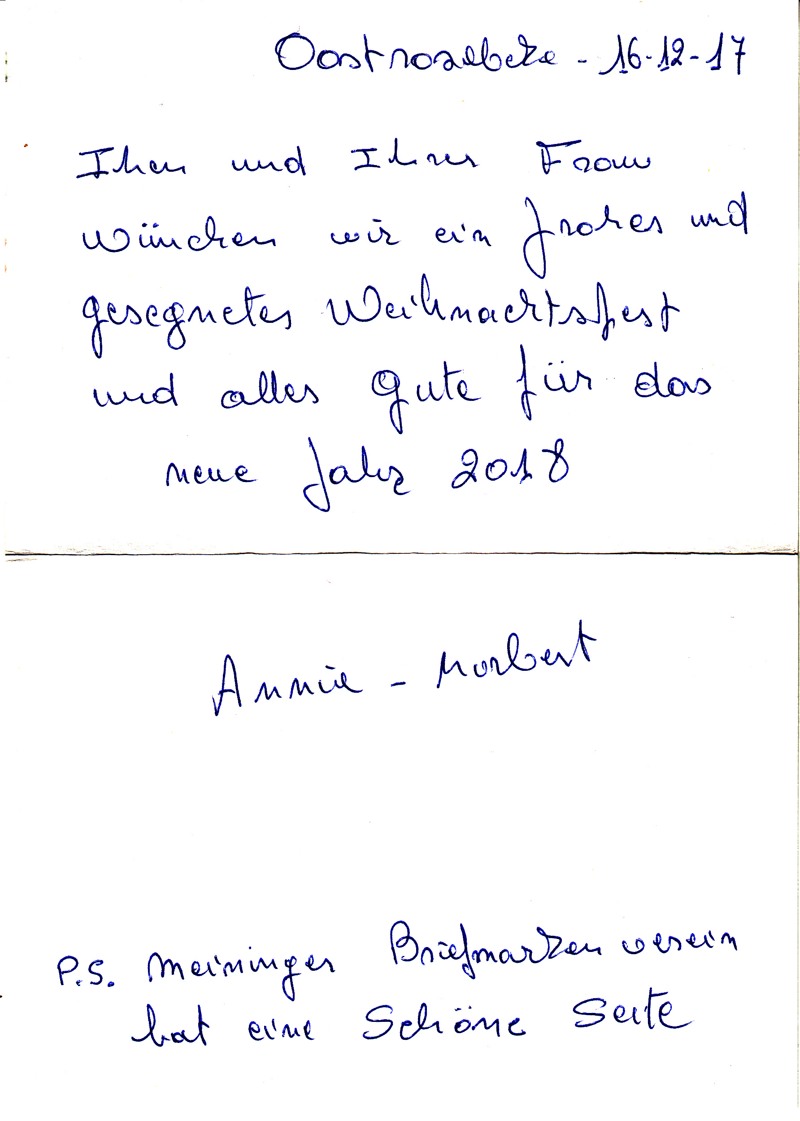 Oostrozebeke - 16-12-17
Ihen und Ihrer Frau
wünchen wir ein frohes und
gesegnetes Weihnachtsfest
und alles gute für das
neue Jahr 2018
Annie - Norbert
P.S. Meininger Briefmarken verein
hat eine Schöne Seite